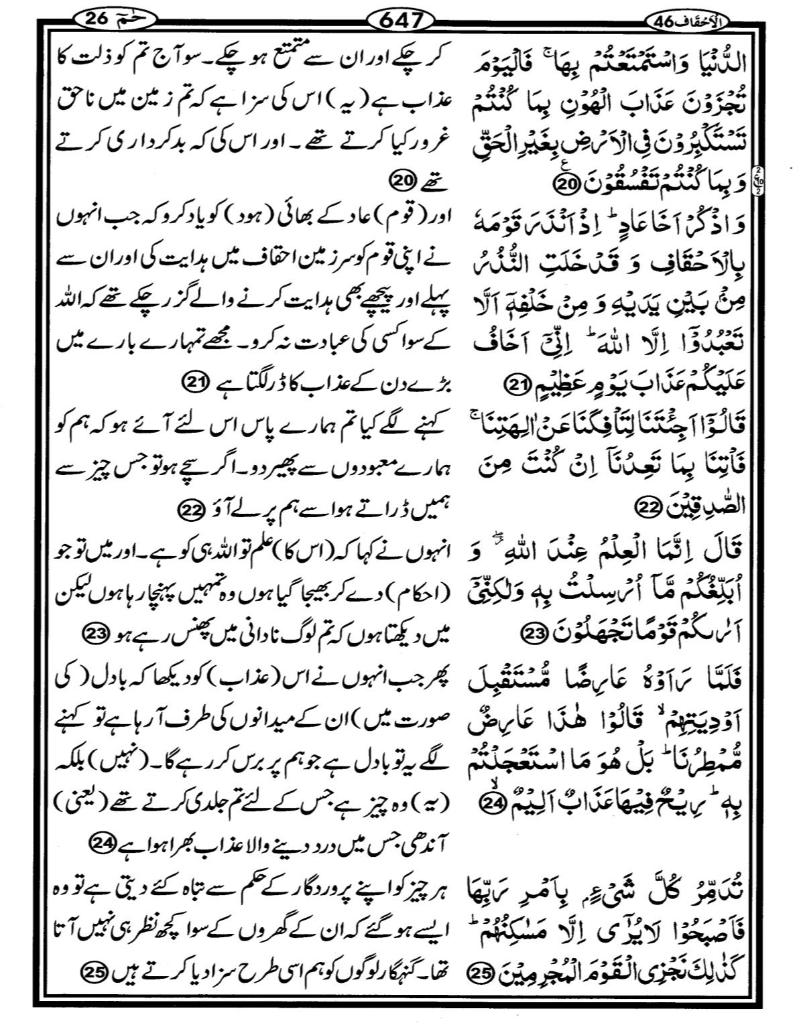 الاحقاف 46
647
حٰمٓ 26
الدُّنْيَا وَاسْتَمْتَعْتُمْ بِهَا ۚ فَالْيَوْمَ
تُجْزَوْنَ عَذَابَ الْهُوْنِ بِمَا كُنْتُمْ
تَسْتَكْبِرُوْنَ فِي الْاَرْضِ بِغَيْرِ الْحَقِّ
وَبِمَا كُنْتُمْ تَفْسُقُوْنَ 20
وَاذْكُرْ اَخَا عَادٍ ؕ اِذْ اَنْذَرَ قَوْمَهٗ
بِالْاَحْقَافِ وَ قَدْ خَلَتِ النُّذُرُ
مِنْۢ بَيْنِ يَدَيْهِ وَ مِنْ خَلْفِهٖۤ اَلَّا
تَعْبُدُوْۤا اِلَّا اللهَ ؕ اِنِّيْۤ اَخَافُ
عَلَيْكُمْ عَذَابَ يَوْمٍ عَظِيْمٍ 21
قَالُوْۤا اَجِئْتَنَا لِتَاْفِكَنَا عَنْ اٰلِهَتِنَا ۚ
فَاْتِنَا بِمَا تَعِدُنَاۤ اِنْ كُنْتَ مِنَ
الصّٰدِقِيْنَ 22
قَالَ اِنَّمَا الْعِلْمُ عِنْدَ اللهِ ۖ وَ
اُبَلِّغُكُمْ مَّاۤ اُرْسِلْتُ بِهٖ وَلٰكِنِّيْۤ
اَرٰىكُمْ قَوْمًا تَجْهَلُوْنَ 23
فَلَمَّا رَاَوْهُ عَارِضًا مُّسْتَقْبِلَ
اَوْدِيَتِهِمْ ۙ قَالُوْا هٰذَا عَارِضٌ
مُّمْطِرُنَا ؕ بَلْ هُوَ مَا اسْتَعْجَلْتُمْ
بِهٖ ؕ رِيْحٌ فِيْهَا عَذَابٌ اَلِيْمٌ ۙ 24
تُدَمِّرُ كُلَّ شَيْءٍۭ بِاَمْرِ رَبِّهَا
فَاَصْبَحُوْا لَا يُرٰۤى اِلَّا مَسٰكِنُهُمْ ؕ
كَذٰلِكَ نَجْزِي الْقَوْمَ الْمُجْرِمِيْنَ 25
کر چکے اور ان سے متمتع ہو چکے۔ سو آج تم کو ذلت کا
عذاب ہے (یہ) اس کی سزا ہے کہ تم زمین میں ناحق
غرور کیا کرتے تھے۔ اور اس کی کہ بدکرداری کرتے
تھے 20
اور (قوم) عاد کے بھائی (ہود) کو یاد کرو کہ جب انہوں
نے اپنی قوم کو سرزمین احقاف میں ہدایت کی اور ان سے
پہلے اور پیچھے بھی ہدایت کرنے والے گزر چکے تھے کہ اللہ
کے سوا کسی کی عبادت نہ کرو۔ مجھے تمہارے بارے میں
بڑے دن کے عذاب کا ڈر لگتا ہے 21
کہنے لگے کیا تم ہمارے پاس اس لئے آئے ہو کہ ہم کو
ہمارے معبودوں سے پھیر دو۔ اگر سچے ہو تو جس چیز سے
ہمیں ڈراتے ہو اسے ہم پر لے آؤ 22
انہوں نے کہا کہ (اس کا) علم تو اللہ ہی کو ہے۔ اور میں تو جو
(احکام) دے کر بھیجا گیا ہوں وہ تمہیں پہنچا رہا ہوں لیکن
میں دیکھتا ہوں کہ تم لوگ نادانی میں پھنس رہے ہو 23
پھر جب انہوں نے اس (عذاب) کو دیکھا کہ بادل (کی
صورت میں) ان کے میدانوں کی طرف آ رہا ہے تو کہنے
لگے یہ تو بادل ہے جو ہم پر برس کر رہے گا۔ (نہیں) بلکہ
(یہ) وہ چیز ہے جس کے لئے تم جلدی کرتے تھے (یعنی)
آندھی جس میں درد دینے والا عذاب بھرا ہوا ہے 24
ہر چیز کو اپنے پروردگار کے حکم سے تباہ کئے دیتی ہے تو وہ
ایسے ہو گئے کہ ان کے گھروں کے سوا کچھ نظر ہی نہیں آتا
تھا۔ گنہگار لوگوں کو ہم اسی طرح سزا دیا کرتے ہیں 25